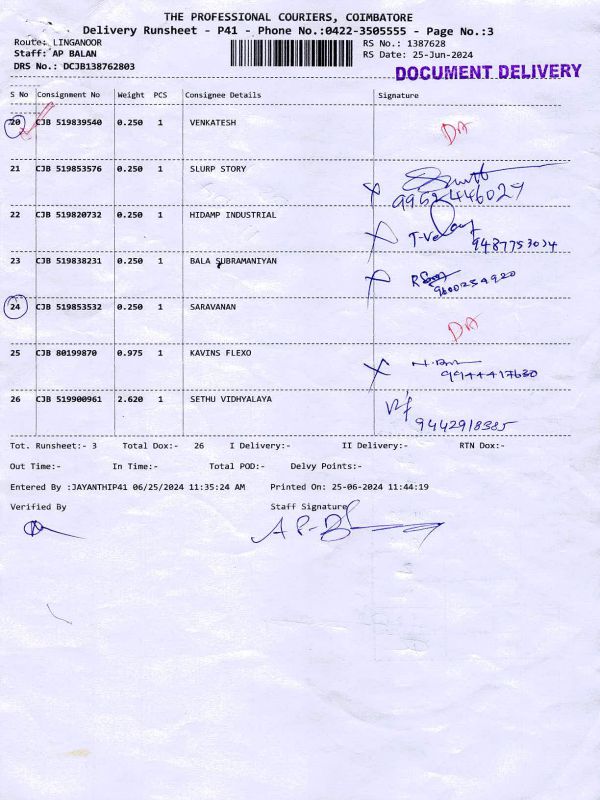 THE PROFESSIONAL COURIERS, COIMBATORE
Delivery Runsheet - P41 - Phone No.:0422-3505555 - Page No.:3
Route: LINGANOOR RS No.: 1387628
Staff: AP BALAN RS Date: 25-Jun-2024
DRS No.: DCJB138762803
DOCUMENT DELIVERY
S No Consignment No Weight PCS Consignee Details Signature
20 CJB 519839540 0.250 1 VENKATESH DA
21 CJB 519853576 0.250 1 SLURP STORY
9952446029
22 CJB 519820732 0.250 1 HIDAMP INDUSTRIAL
9487753034
23 CJB 519838231 0.250 1 BALA SUBRAMANIYAN
9600259920
24 CJB 519853532 0.250 1 SARAVANAN DA
25 CJB 80199870 0.975 1 KAVINS FLEXO
9944417630
26 CJB 519900961 2.620 1 SETHU VIDHYALAYA
9442918385
Tot. Runsheet:- 3 Total Dox:- 26 I Delivery:- II Delivery:- RTN Dox:-
Out Time:- In Time:- Total POD:- Delvy Points:-
Entered By :JAYANTHIP41 06/25/2024 11:35:24 AM Printed On: 25-06-2024 11:44:19
Verified By Staff Signature